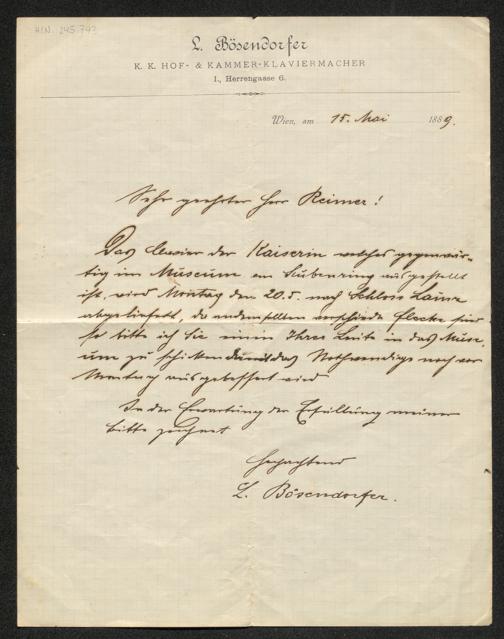 HIN. 245.743
L. Bösendorfer
K. K. HOF- & KAMMER-KLAVIERMACHER
I., Herrengasse 6.
Wien, am 15. Mai 1889.
Sehr geehrter Herr Reimer!
Das Clavier der Kaiserin welches gegenwär-
tig im Museum am Stubenring ausgestellt
ist, wird Montag den 20. d. nach Schloss Lainz
abgeliefert, da an demselben verschiedene Flecke sind
so bitte ich Sie einen Ihrer Leute in das Muse-
um zu schicken damit das Nothwendige noch vor
Montag ausgebessert wird
In der Erwartung der Erfüllung meiner
Bitte zeichnet
Hochachtend
L. Bösendorfer.